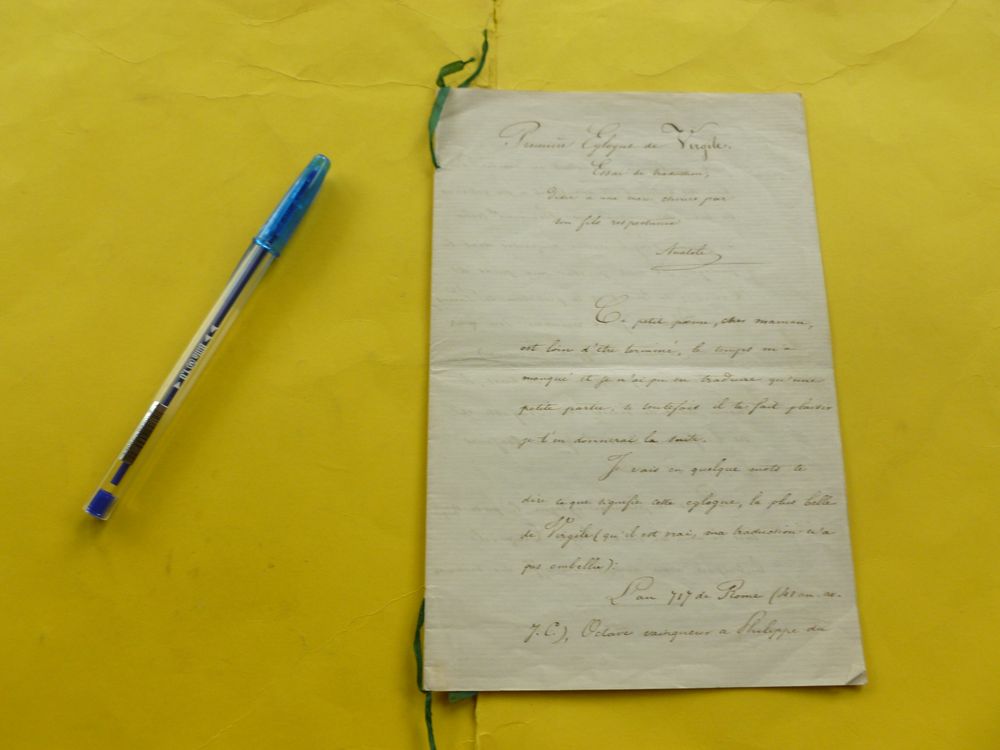 Première Eglogue de Virgile.
Essai de traduction,
dédié à ma mère chérie par
son fils respectueux
Anatole
Ce petit poème, chère maman,
est loin d'être terminé, le temps m'a
manqué et je n'ai pu en traduire qu'une
petite partie, si toutefois il te fait plaisir
je t'en donnerai la suite.
Je vais en quelque mots te
dire ce que signifie cette eglogue, la plus belle
de Virgile (qu'il est vrai, ma traduction n'a
pas embellie):
L'an 717 de Rome (
J. C.), Octave vainqueur a Philippe du